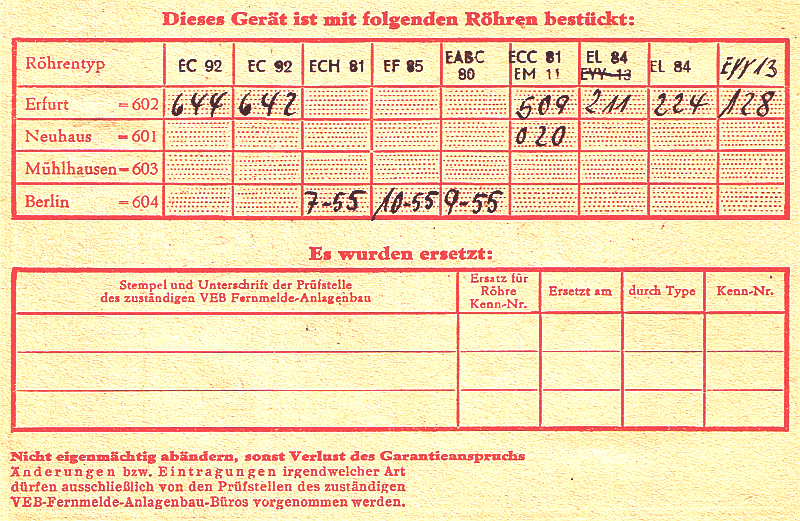 Dieses Gerät ist mit folgenden Röhren bestückt:
Röhrentyp EC 92 EC 92 ECH 81 EF 85 EABC 80 ECC 81 EM 11 EL 84 EYY 13 EL 84 EYY 13
Erfurt = 602 644 642 509 211 224 128
Neuhaus = 601 020
Mühlhausen = 603
Berlin = 604 7-55 10-55 9-55
Es wurden ersetzt:
Stempel und Unterschrift der Prüfstelle
des zuständigen VEB Fernmelde-Anlagenbau
Ersatz für
Röhre
Kenn-Nr.
Ersetzt am
durch Type
Kenn-Nr.
Nicht eigenmächtig abändern, sonst Verlust des Garantieanspruchs
Änderungen bzw. Eintragungen irgendwelcher Art
dürfen ausschließlich von den Prüfstellen des zuständigen
VEB-Fernmelde-Anlagenbau-Büros vorgenommen werden.